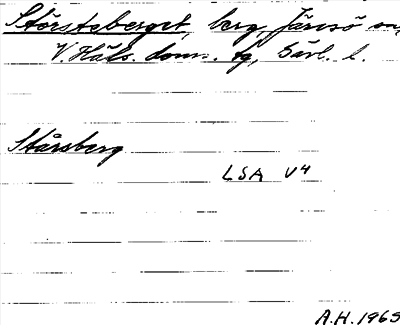 Störstaberget, berg, Järvsö sn,
V. Häls. doms. tg, Gävl. l.
Stårsberg
LSA V4
A.H. 1965